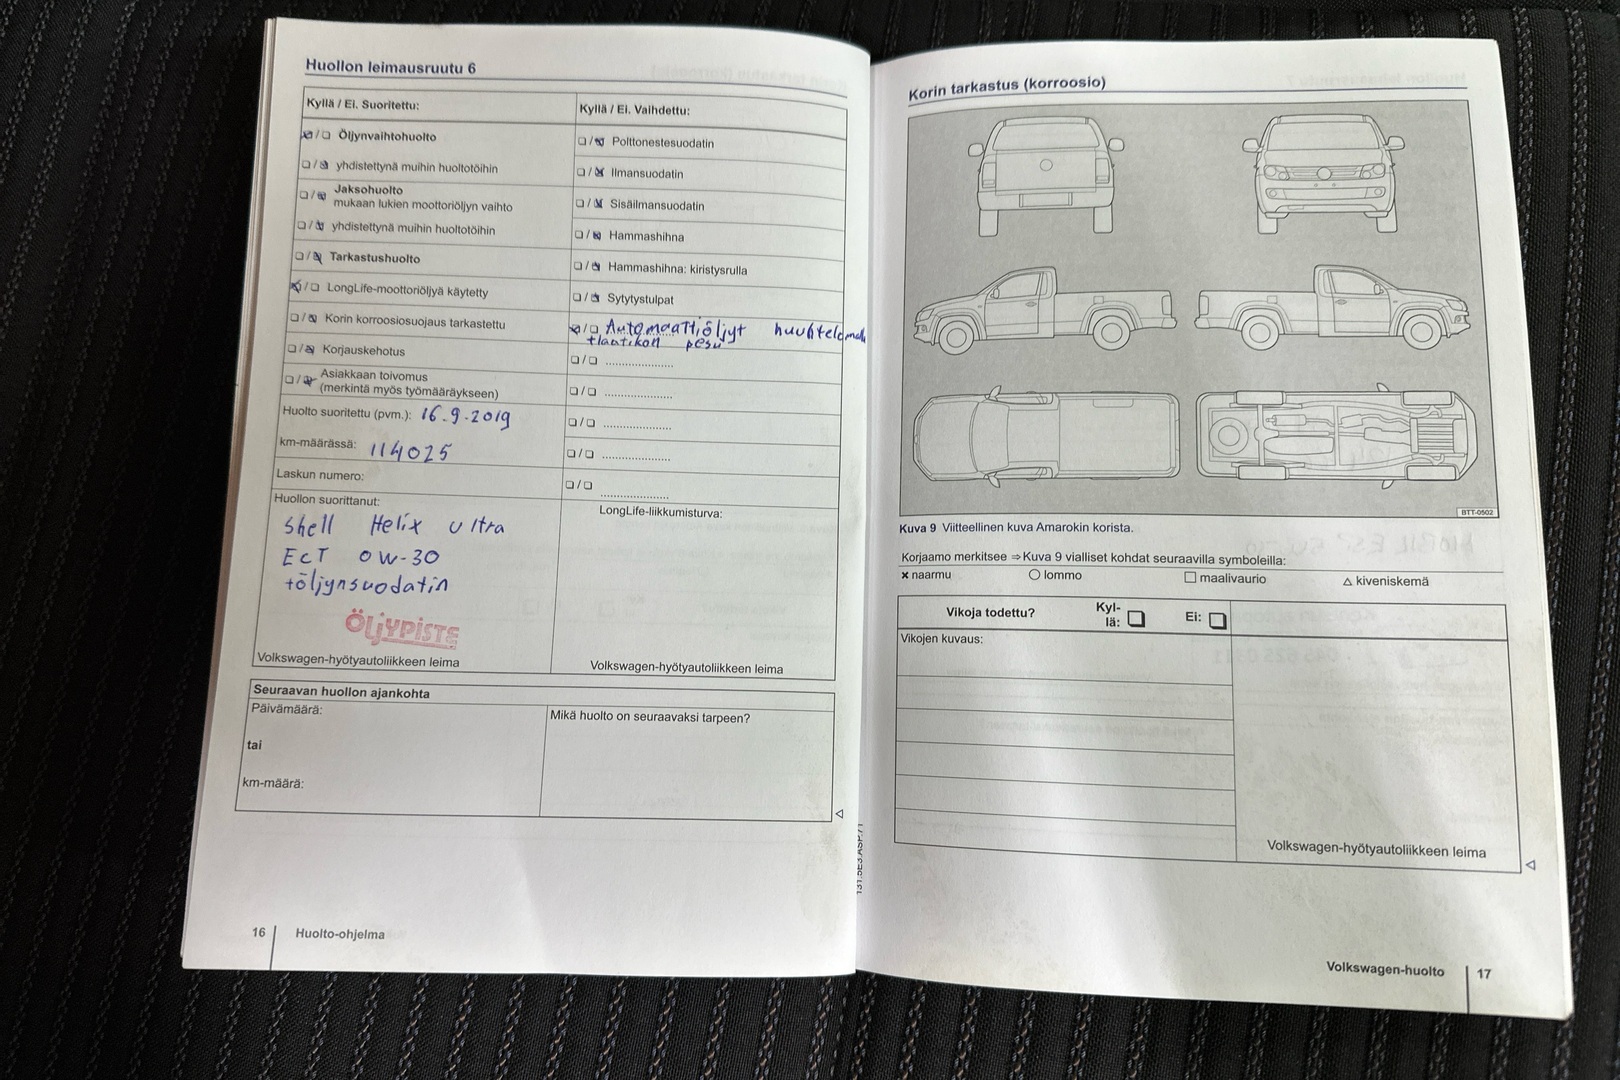 Huollon leimausruutu 6
Kyllä / Ei. Suoritettu:
❏/❏ Öljynvaihtohuolto
❏/❏ yhdistettynä muihin huoltotöihin
❏/❏ Jaksohuolto
mukaan lukien moottoriöljyn vaihto
❏/❏ yhdistettynä muihin huoltotöihin
❏/❏ Tarkastushuolto
❏/❏ LongLife-moottoriöljyä käytetty
❏/❏ Korin korroosiosuojaus tarkastettu
❏/❏ Korjauskehotus
❏/❏ Asiakkaan toivomus
(merkintä myös työmääräykseen)
Huolto suoritettu (pvm.): 16.9.2019
km-määrässä: 114025
Laskun numero:
Huollon suorittanut:
Shell Helix Ultra
ECT 0W-30
+öljynsuodatin
ÖljYPISTE
Volkswagen-hyötyautoliikkeen leima
Kyllä / Ei. Vaihdettu:
❏/❏ Polttonestesuodatin
❏/❏ Ilmansuodatin
❏/❏ Sisäilmansuodatin
❏/❏ Hammashihna
❏/❏ Hammashihna: kiristysrulla
❏/❏ Sytytystulpat
❏/❏ Automaattiöljyt huuhtelemalla
+laatikon pesu
❏/❏ ......................
❏/❏ ......................
❏/❏ ......................
❏/❏ ......................
❏/❏ ......................
LongLife-liikkumisturva:
Volkswagen-hyötyautoliikkeen leima
Seuraavan huollon ajankohta
Päivämäärä:
tai
km-määrä:
Mikä huolto on seuraavaksi tarpeen?
16 Huolto-ohjelma
Korin tarkastus (korroosio)
BTT-0502
Kuva 9 Viitteellinen kuva Amarokin korista.
Korjaamo merkitsee ⇒Kuva 9 vialliset kohdat seuraavilla symboleilla:
× naarmu ○ lommo □ maalivaurio △ kiveniskemä
Vikoja todettu? Kyl-
lä: ❏ Ei: ❏
Vikojen kuvaus:
Volkswagen-hyötyautoliikkeen leima
Volkswagen-huolto 17